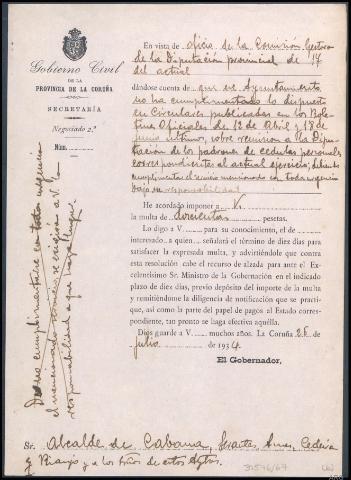 Gobierno Civil
DE LA
PROVINCIA DE LA CORUÑA
SECRETARÍA
Negociado 2º
Núm.
En vista de oficio de la Comisión Gestora
de la Diputación provincial de 17
del actual
dándose cuenta de que ese Ayuntamiento
no ha cumplimentado lo dispuesto
en Circulares publicadas en los Bole-
tines Oficiales de 12 de Abril y 18 de
junio último, sobre remisión a la Dipu-
tación de los padrones de cédulas personales
correspondientes al actual ejercicio, debiendo
cumplimentar el servicio mencionado con toda urgencia
bajo su responsabilidad
He acordado imponer a V.
la multa de doscientas pesetas.
Lo digo a V. para su conocimiento, el de
interesado a quien señalará el término de diez días para
satisfacer la expresada multa, y advirtiéndole que contra
esta resolución cabe el recurso de alzada para ante el Ex-
celentísimo Sr. Ministro de la Gobernación en el indicado
plazo de diez días, previo depósito del importe de la multa
y remitiéndome la diligencia de notificación que se practi-
que, así como la parte del papel de pagos al Estado corres-
pondiente, tan pronto se haga efectiva aquélla.
Dios guarde a V. muchos años. La Coruña 26 de
julio de 1934
El Gobernador,
Debe cumplimentarse con toda urgencia
el mencionado servicio se exigirá a V. la
responsabilidad a que haya lugar.
Sr. Alcalde de Cabana, Serantes, Ames, Cedeira
y Rianjo y a los Srios de estos Aytos.
31576/67